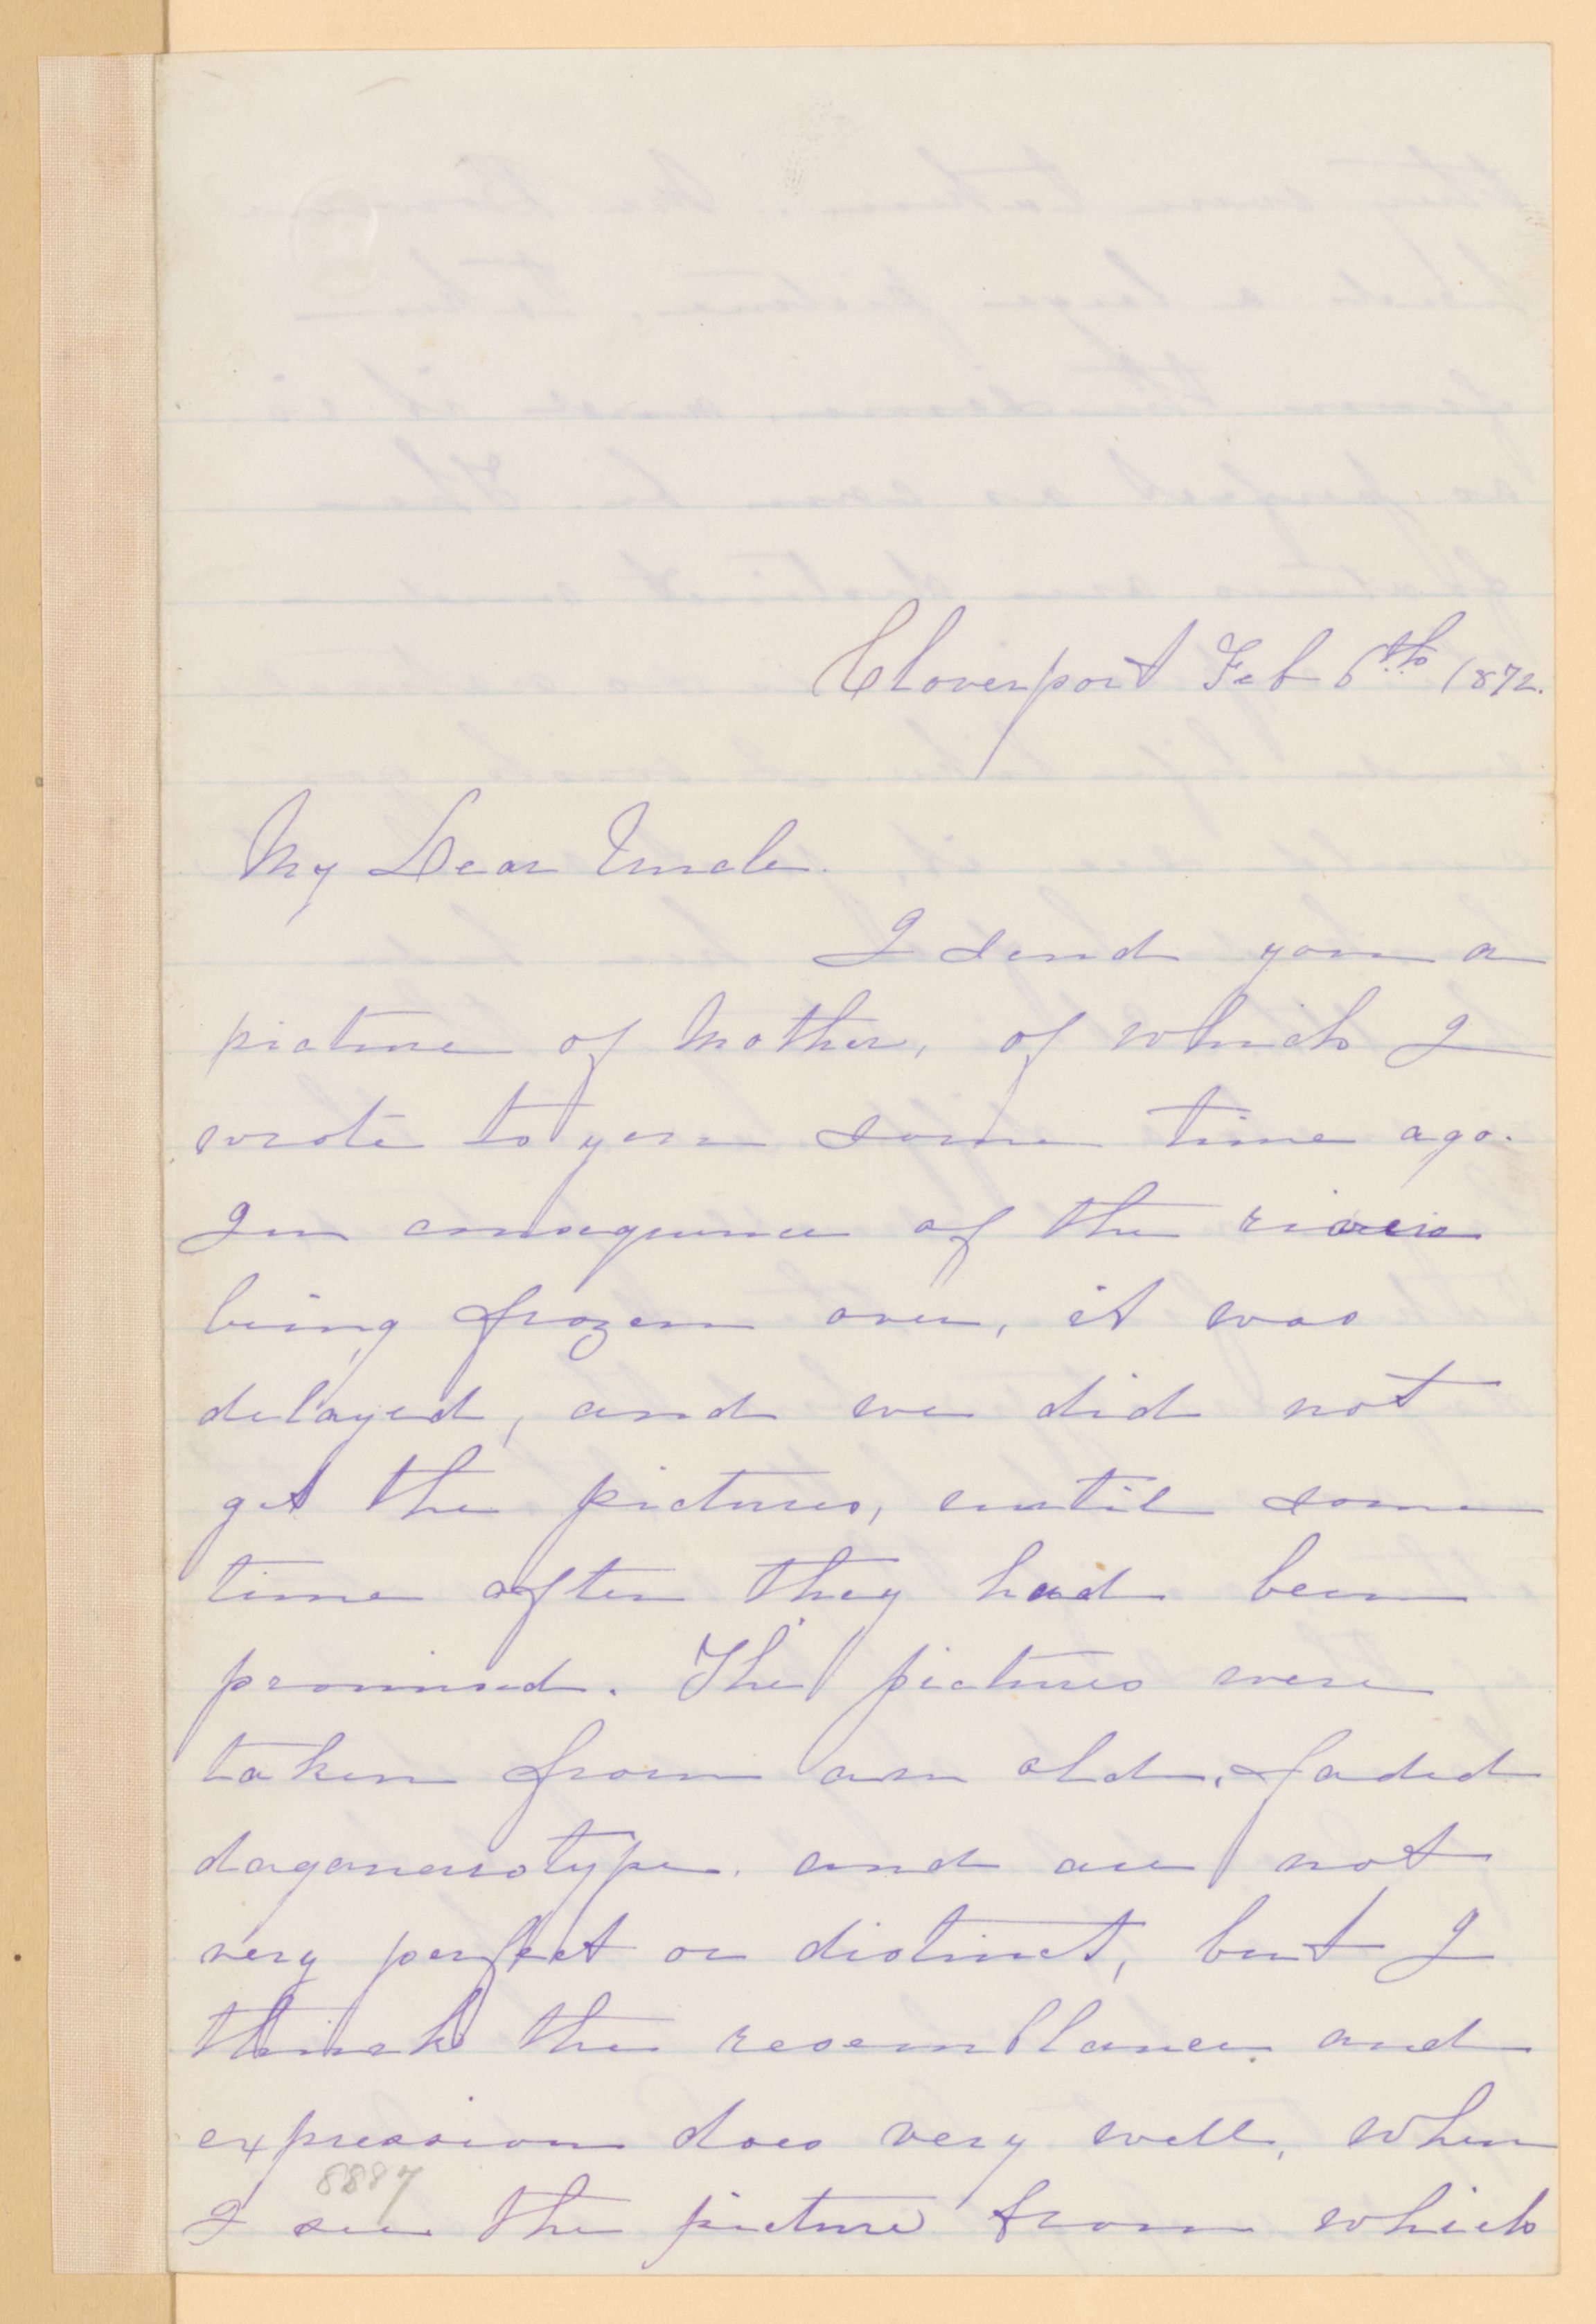 Cloverport Feb 6th 1872.
My Dear Uncle.
I send you a
picture of Mother, of which I
wrote to you some time ago.
In consequence of the river
being frozen over, it was
delayed, and we did not
get the pictures, until some
time after they had been
promised. The pictures were
taken from an old, faded
daganerotype. and are not
very perfect or distinct, but I
think the resemblance and
expression does very well, when
8887
I see the picture from which